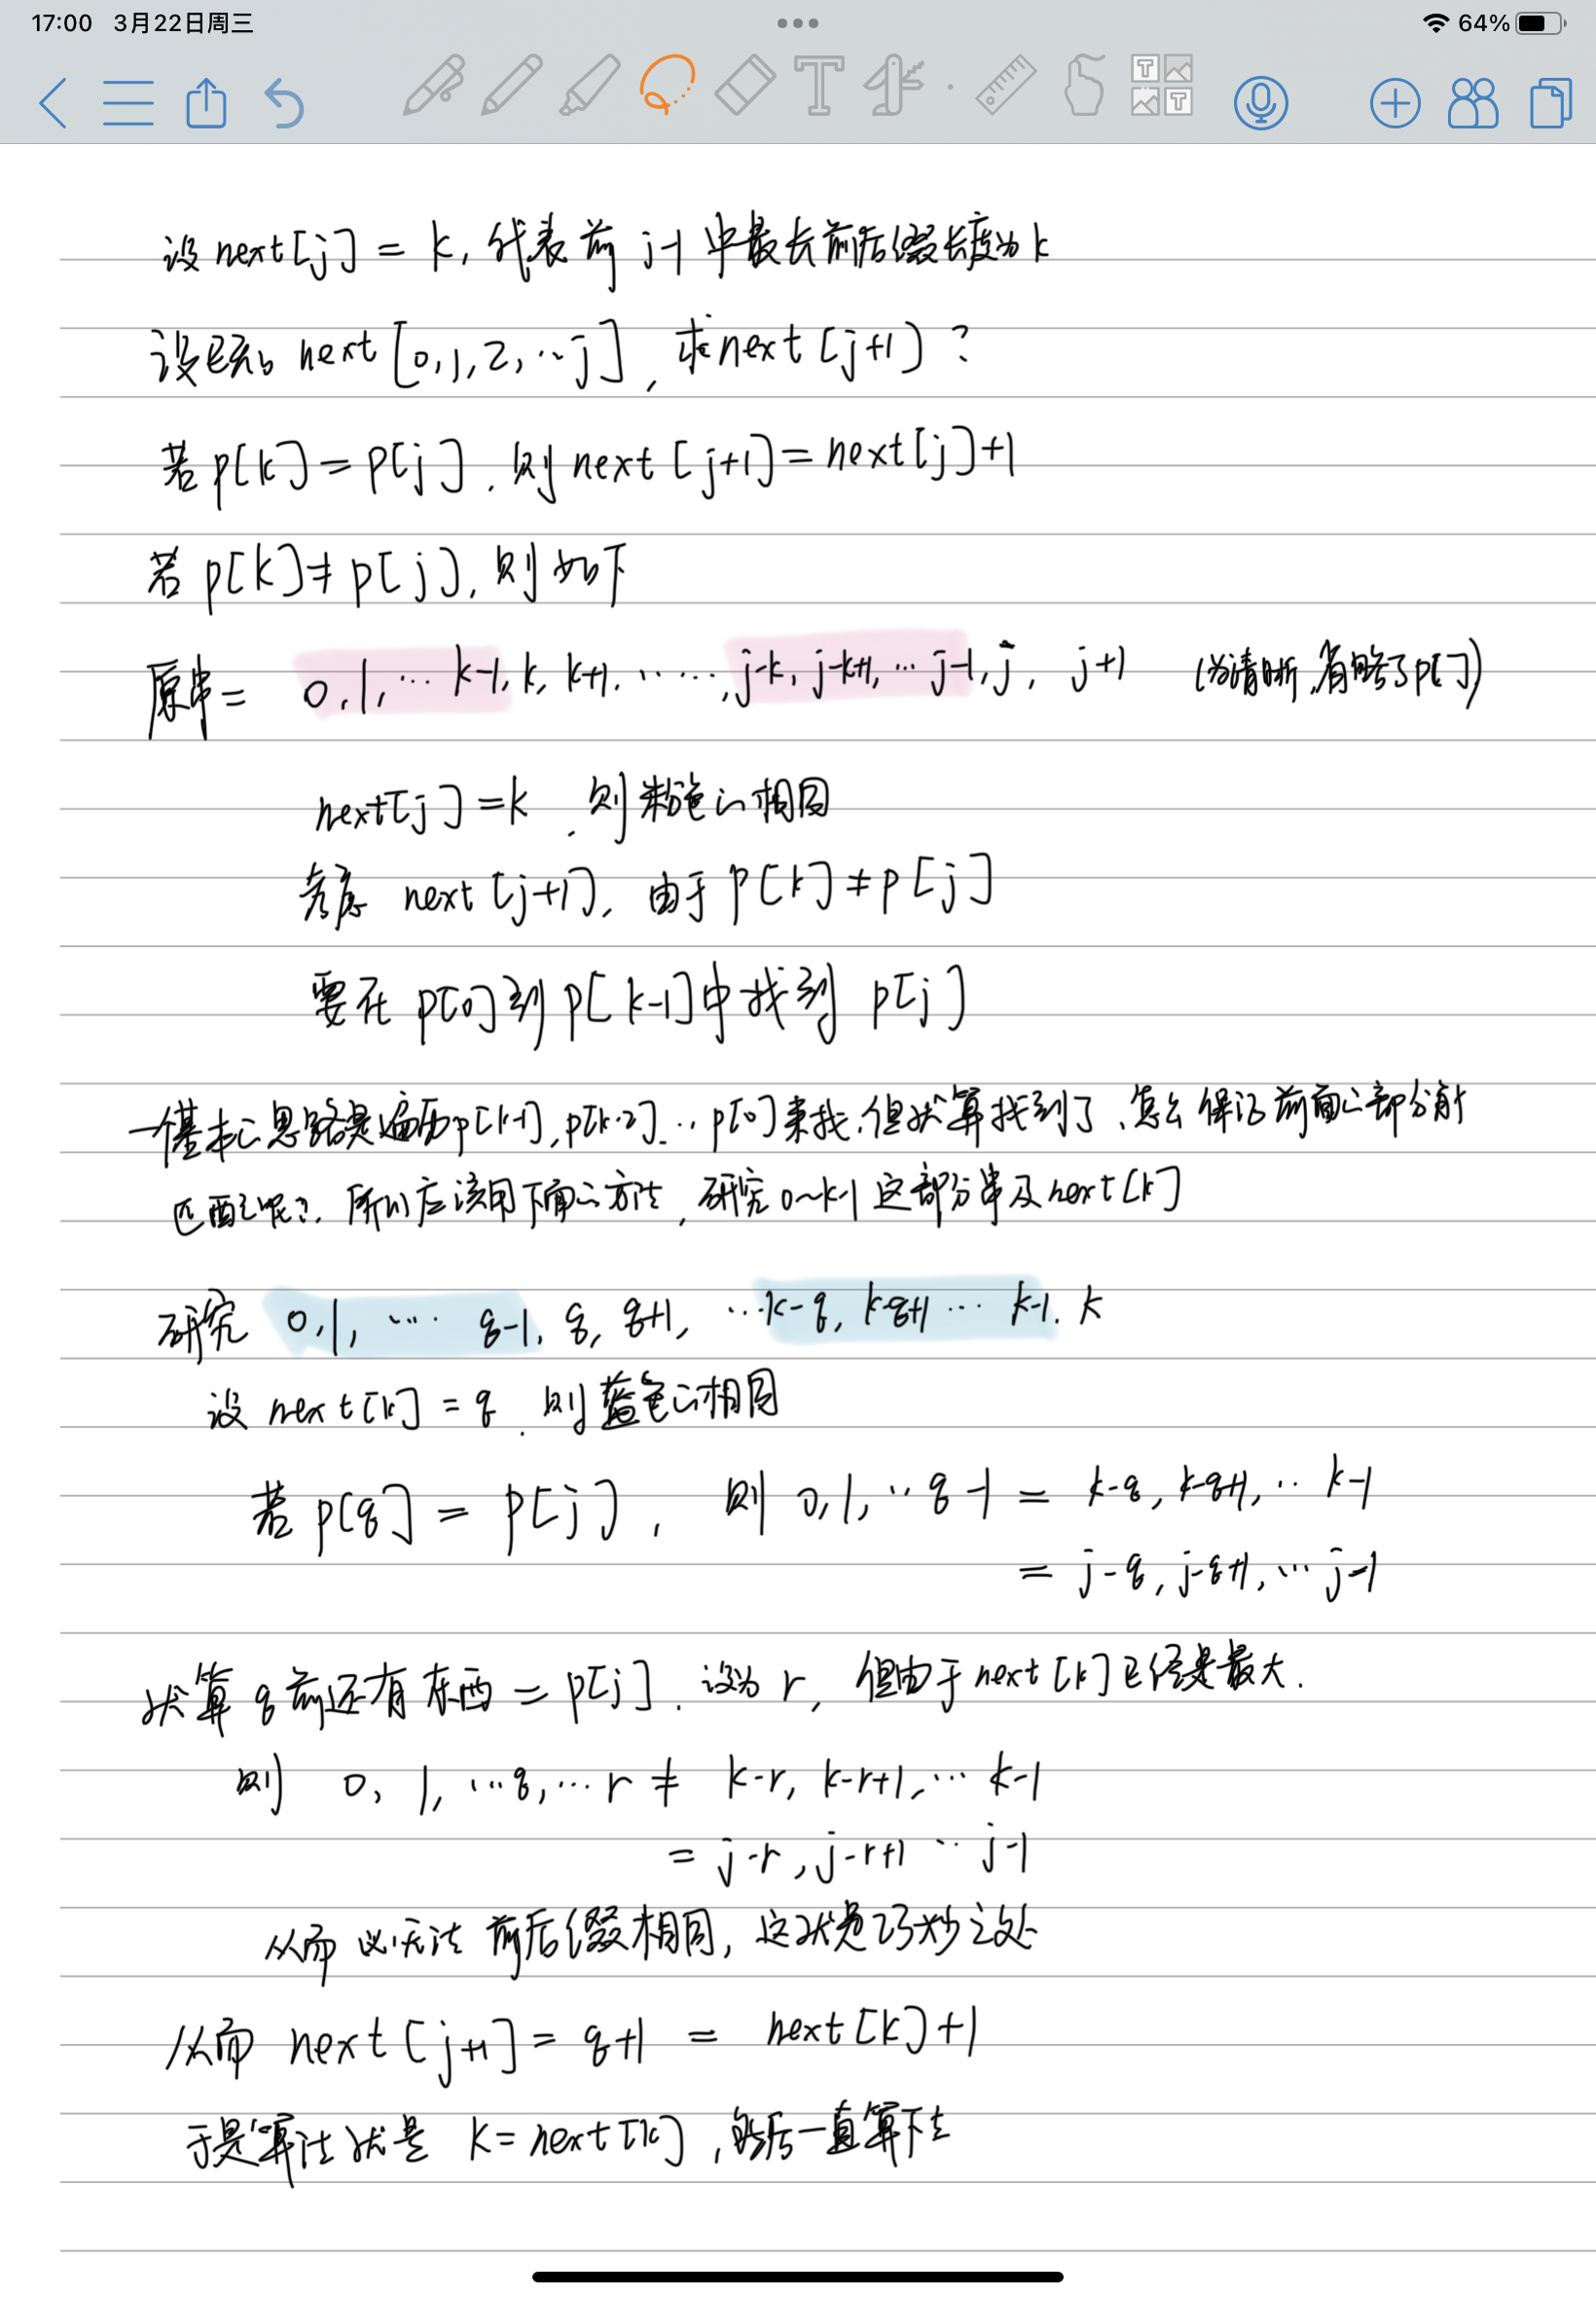 17:00 3月22日周三 64%
设 next[j] = k, 代表前 j-1 中最长前后缀长度为 k
设已知 next[0,1,2,…j], 求next[j+1]?
若 p[k]=p[j], 则 next[j+1]=next[j]+1
若 p[k]≠p[j], 则如下
原串= 0,1,… k-1, k, k+1, ……, j-k, j-k+1, … j-1, j, j+1 (为清晰,省略了p[])
next[j]=k, 则粉色的相同
考虑 next[j+1], 由于 p[k]≠p[j]
要在 p[0]到p[k-1]中找到 p[j]
一个基本的思路是遍历p[k-1],p[k-2]…p[0]来找,但就算找到了,怎么保证前面的部分能
匹配呢?所以应该用下面的方法,研究0~k-1这部分串及next[k]
研究 0,1,… q-1, q, q+1, …k-q, k-q+1 … k-1, k
设 next[k] = q, 则蓝色的相同
若 p[q] = p[j], 则 0,1,…q-1 = k-q, k-q+1,… k-1
= j-q, j-q+1, … j-1
就算 q 前还有东西 = p[j], 设为 r, 但由于next[k]已经是最大.
则 0, 1, …q,… r ≠ k-r, k-r+1,… k-1
= j-r, j-r+1 … j-1
从而必无法前后缀相同, 这就是巧妙之处
从而 next[j+1] = q+1 = next[k]+1
于是算法就是 k=next[k], 然后一直算下去